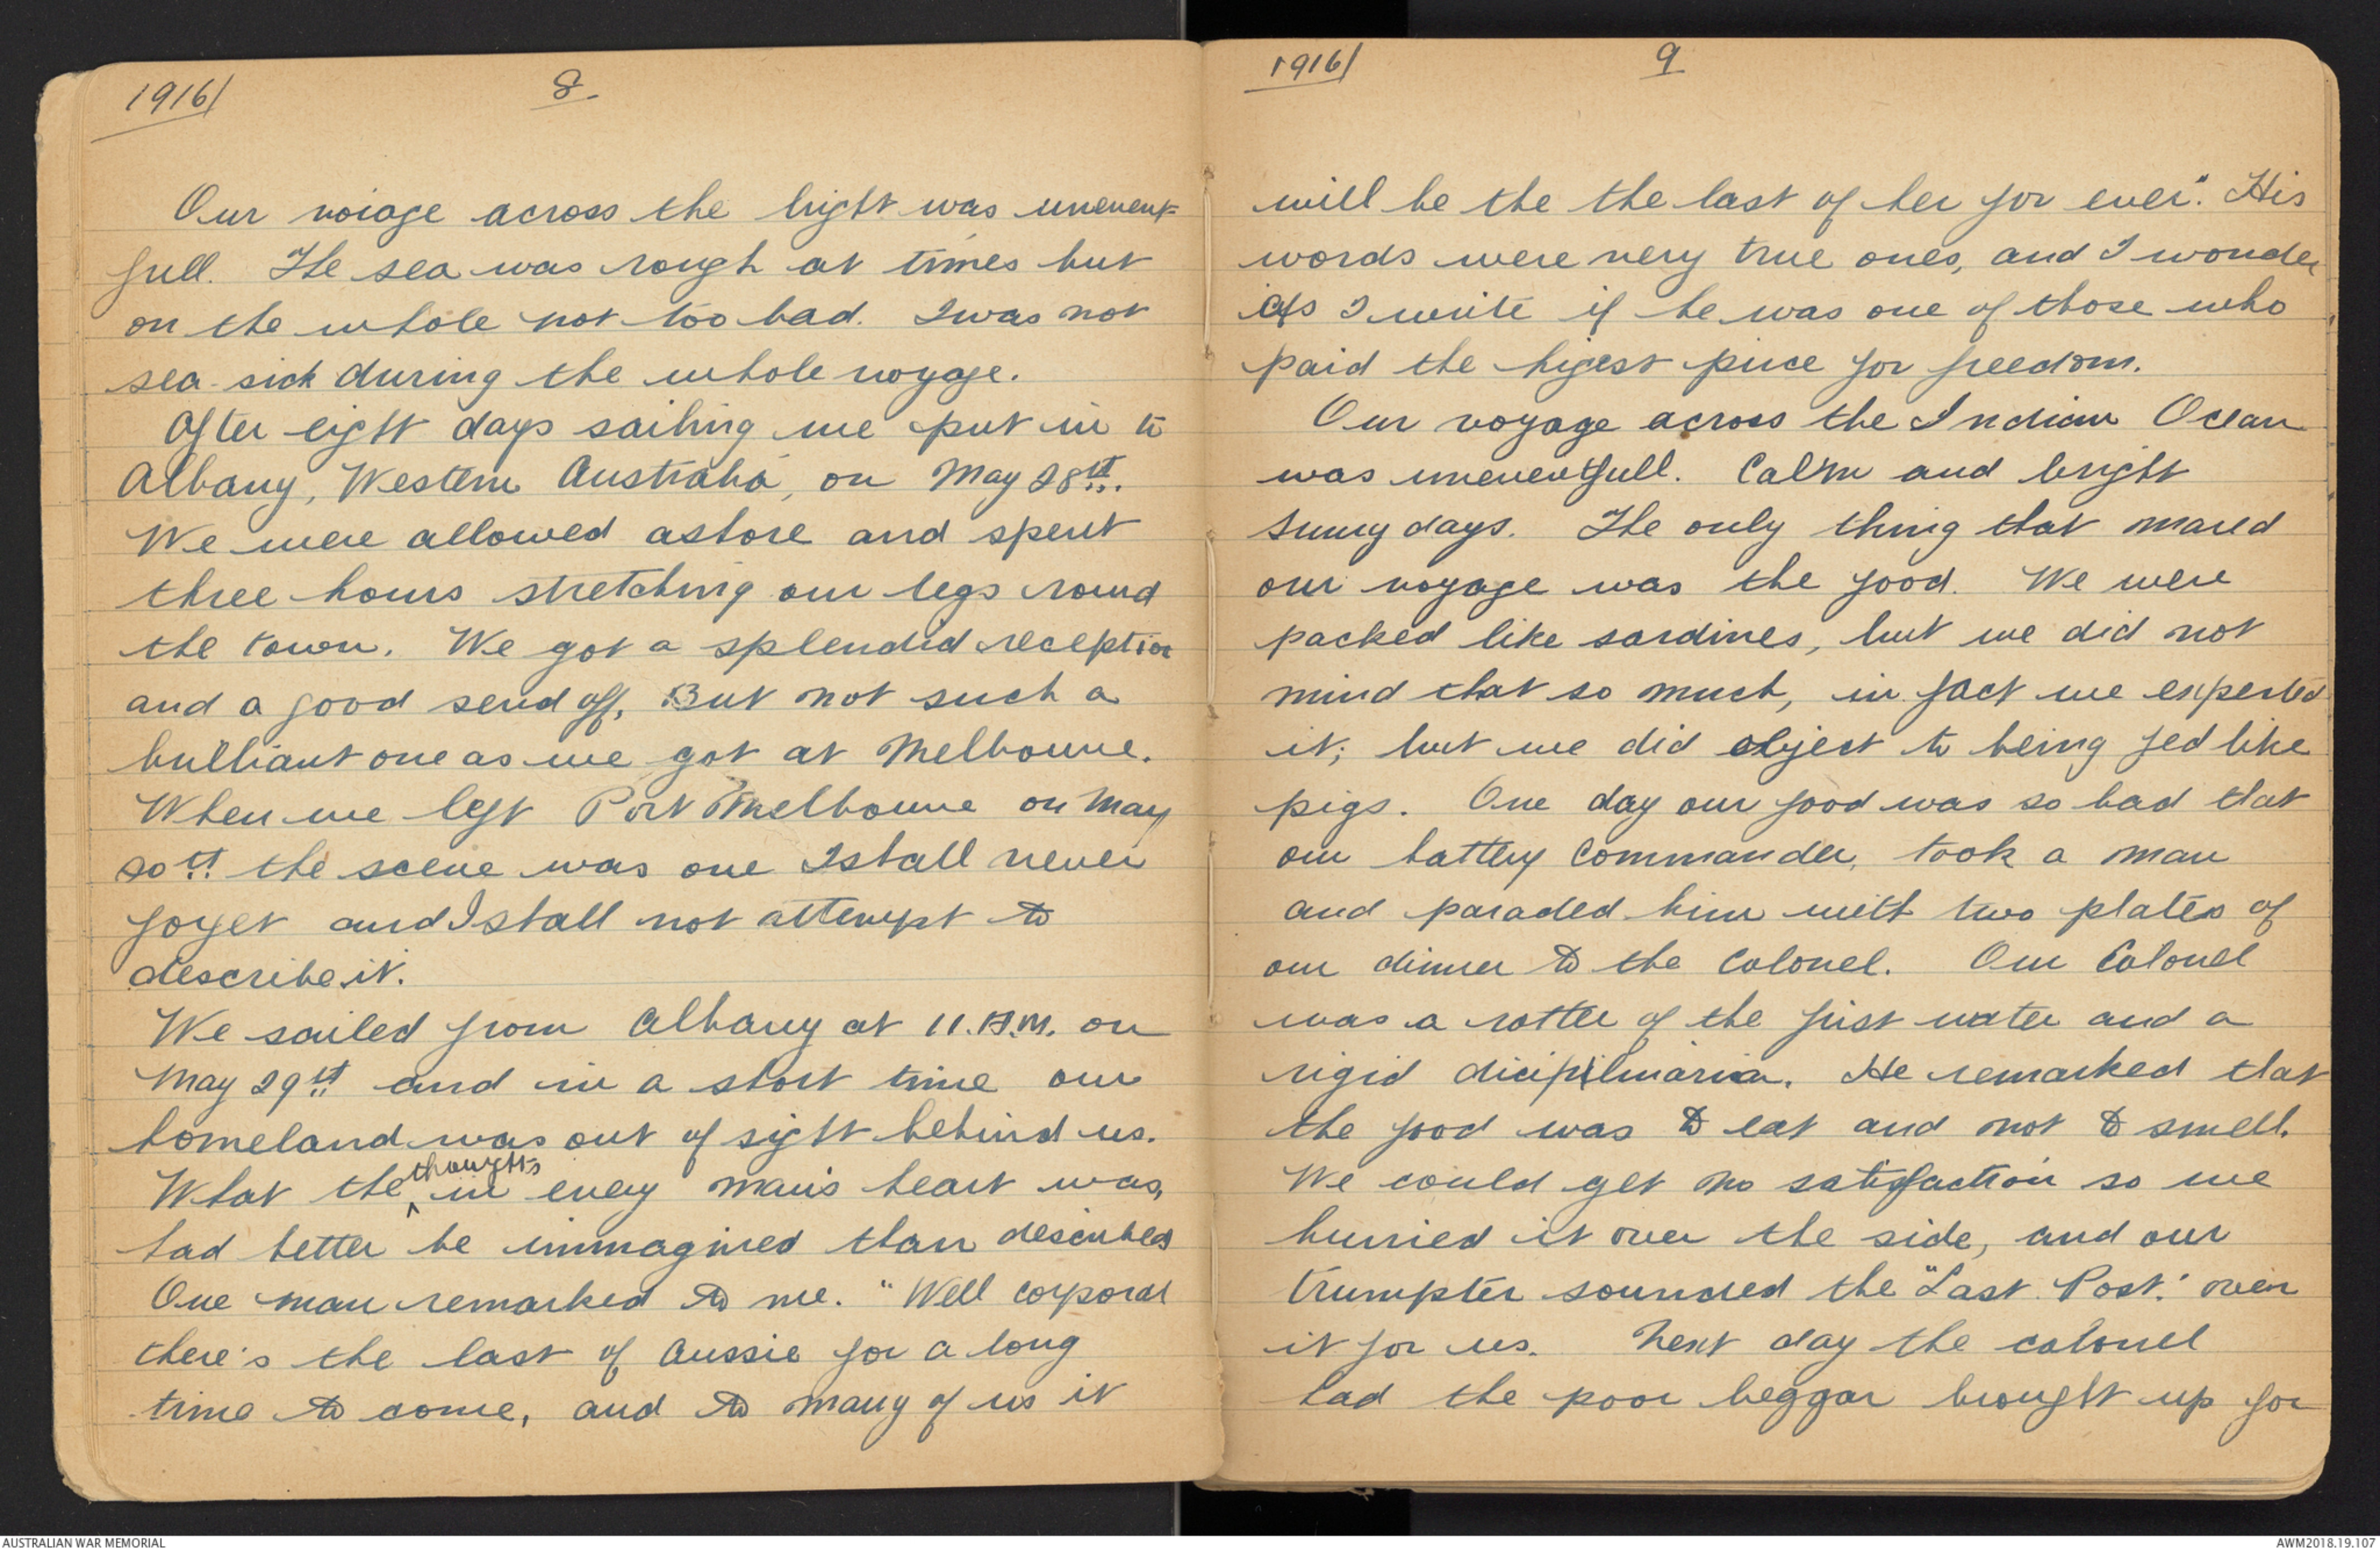 1916/
8
Our voiage across the bight was unevent-
full. The sea was rough at times but
on the whole not too bad. I was not
sea-sick during the whole voyage.
After eight days sailing we put in to
Albany, Western Australia, on May 28th.
We were allowed ashore and spent
three hours stretching our legs round
the town. We got a splendid reception
and a good send off, But not such a
brilliant one as we got at Melbourne.
When we left Port Melbourne on May
20th the scene was one I shall never
forget and I shall not attempt to
describe it.
We sailed from Albany at 11.A.M. on
May 29th and in a short time our
homeland was out of sight behind us.
What the thoughts in every man's heart was,
had better be immagined than described
One man remarked to me. "Well corporal
there's the last of Aussie for a long
time to come, and to many of us it
1916/
9
will be the the last of her for ever". His
words were very true ones, and I wonder
as I write if he was one of those who
paid the higest price for freedom.
Our voyage across the Indian Ocean
was uneventfull. Calm and bright
sunny days. The only thing that mared
our voyage was the food. We were
packed like sardines, but we did not
mind that so much, in fact we expected
it; but we did object to being fed like
pigs. One day our food was so bad that
our battery Commander, took a man
and paraded him with two plates of
our dinner to the Colonel. Our Colonel
was a rotter of the first water and a
rigid diciplinarian. He remarked that
the food was to eat and not to smell.
We could get no satisfaction so we
burried it over the side, and our
trumpter sounded the "Last Post." over
it for us. Next day the colonel
had the poor beggar brought up for
AUSTRALIAN WAR MEMORIAL
AWM2018.19.107